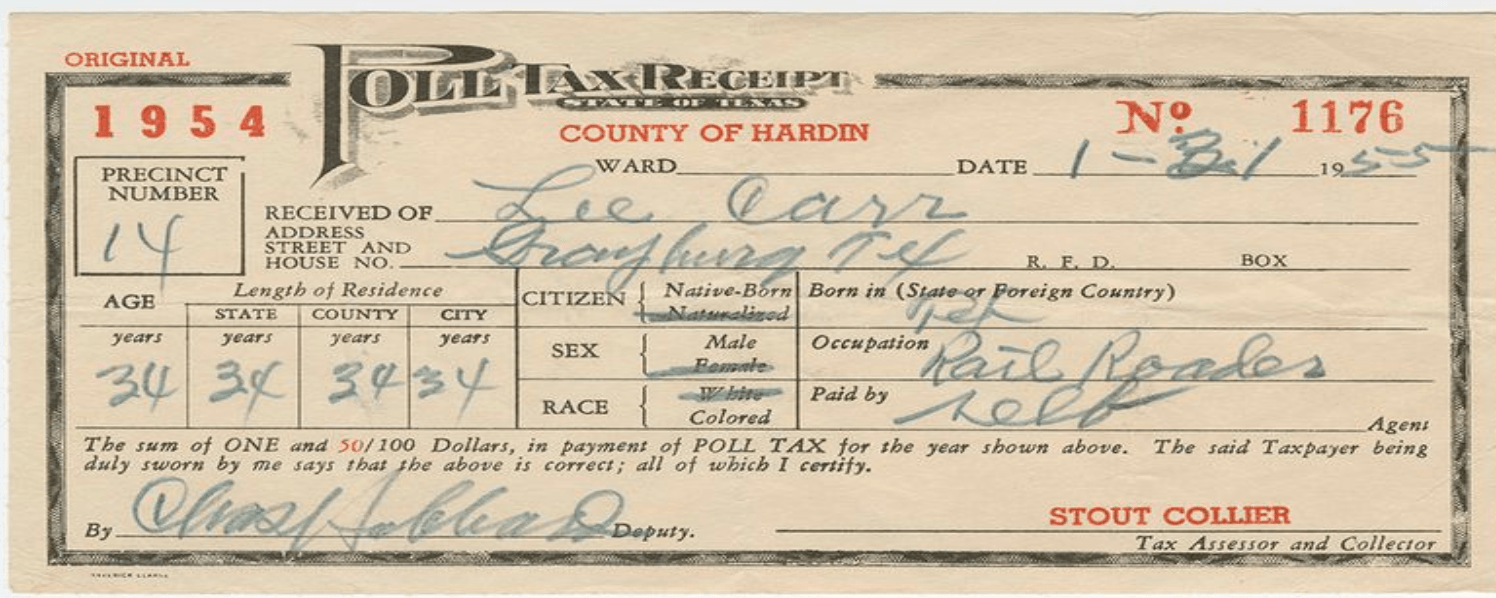 ORIGINAL
POLL TAX RECEIPT
STATE OF TEXAS
1954
COUNTY OF HARDIN
Nº 1176
WARD DATE 1-31 1955
PRECINCT NUMBER
14
RECEIVED OF Lee Carr
ADDRESS
STREET AND
HOUSE NO. Grayburg Tex R. F. D. BOX
AGE
Length of Residence
STATE COUNTY CITY
years years years years
34 34 34 34
CITIZEN { Native-Born
Naturalized
SEX { Male
Female
RACE { White
Colored
Born in (State or Foreign Country)
Tex
Occupation Rail Roader
Paid by self Agent
The sum of ONE and 50/100 Dollars, in payment of POLL TAX for the year shown above. The said Taxpayer being
duly sworn by me says that the above is correct; all of which I certify.
By Chas Hubbard Deputy.
STOUT COLLIER
Tax Assessor and Collector